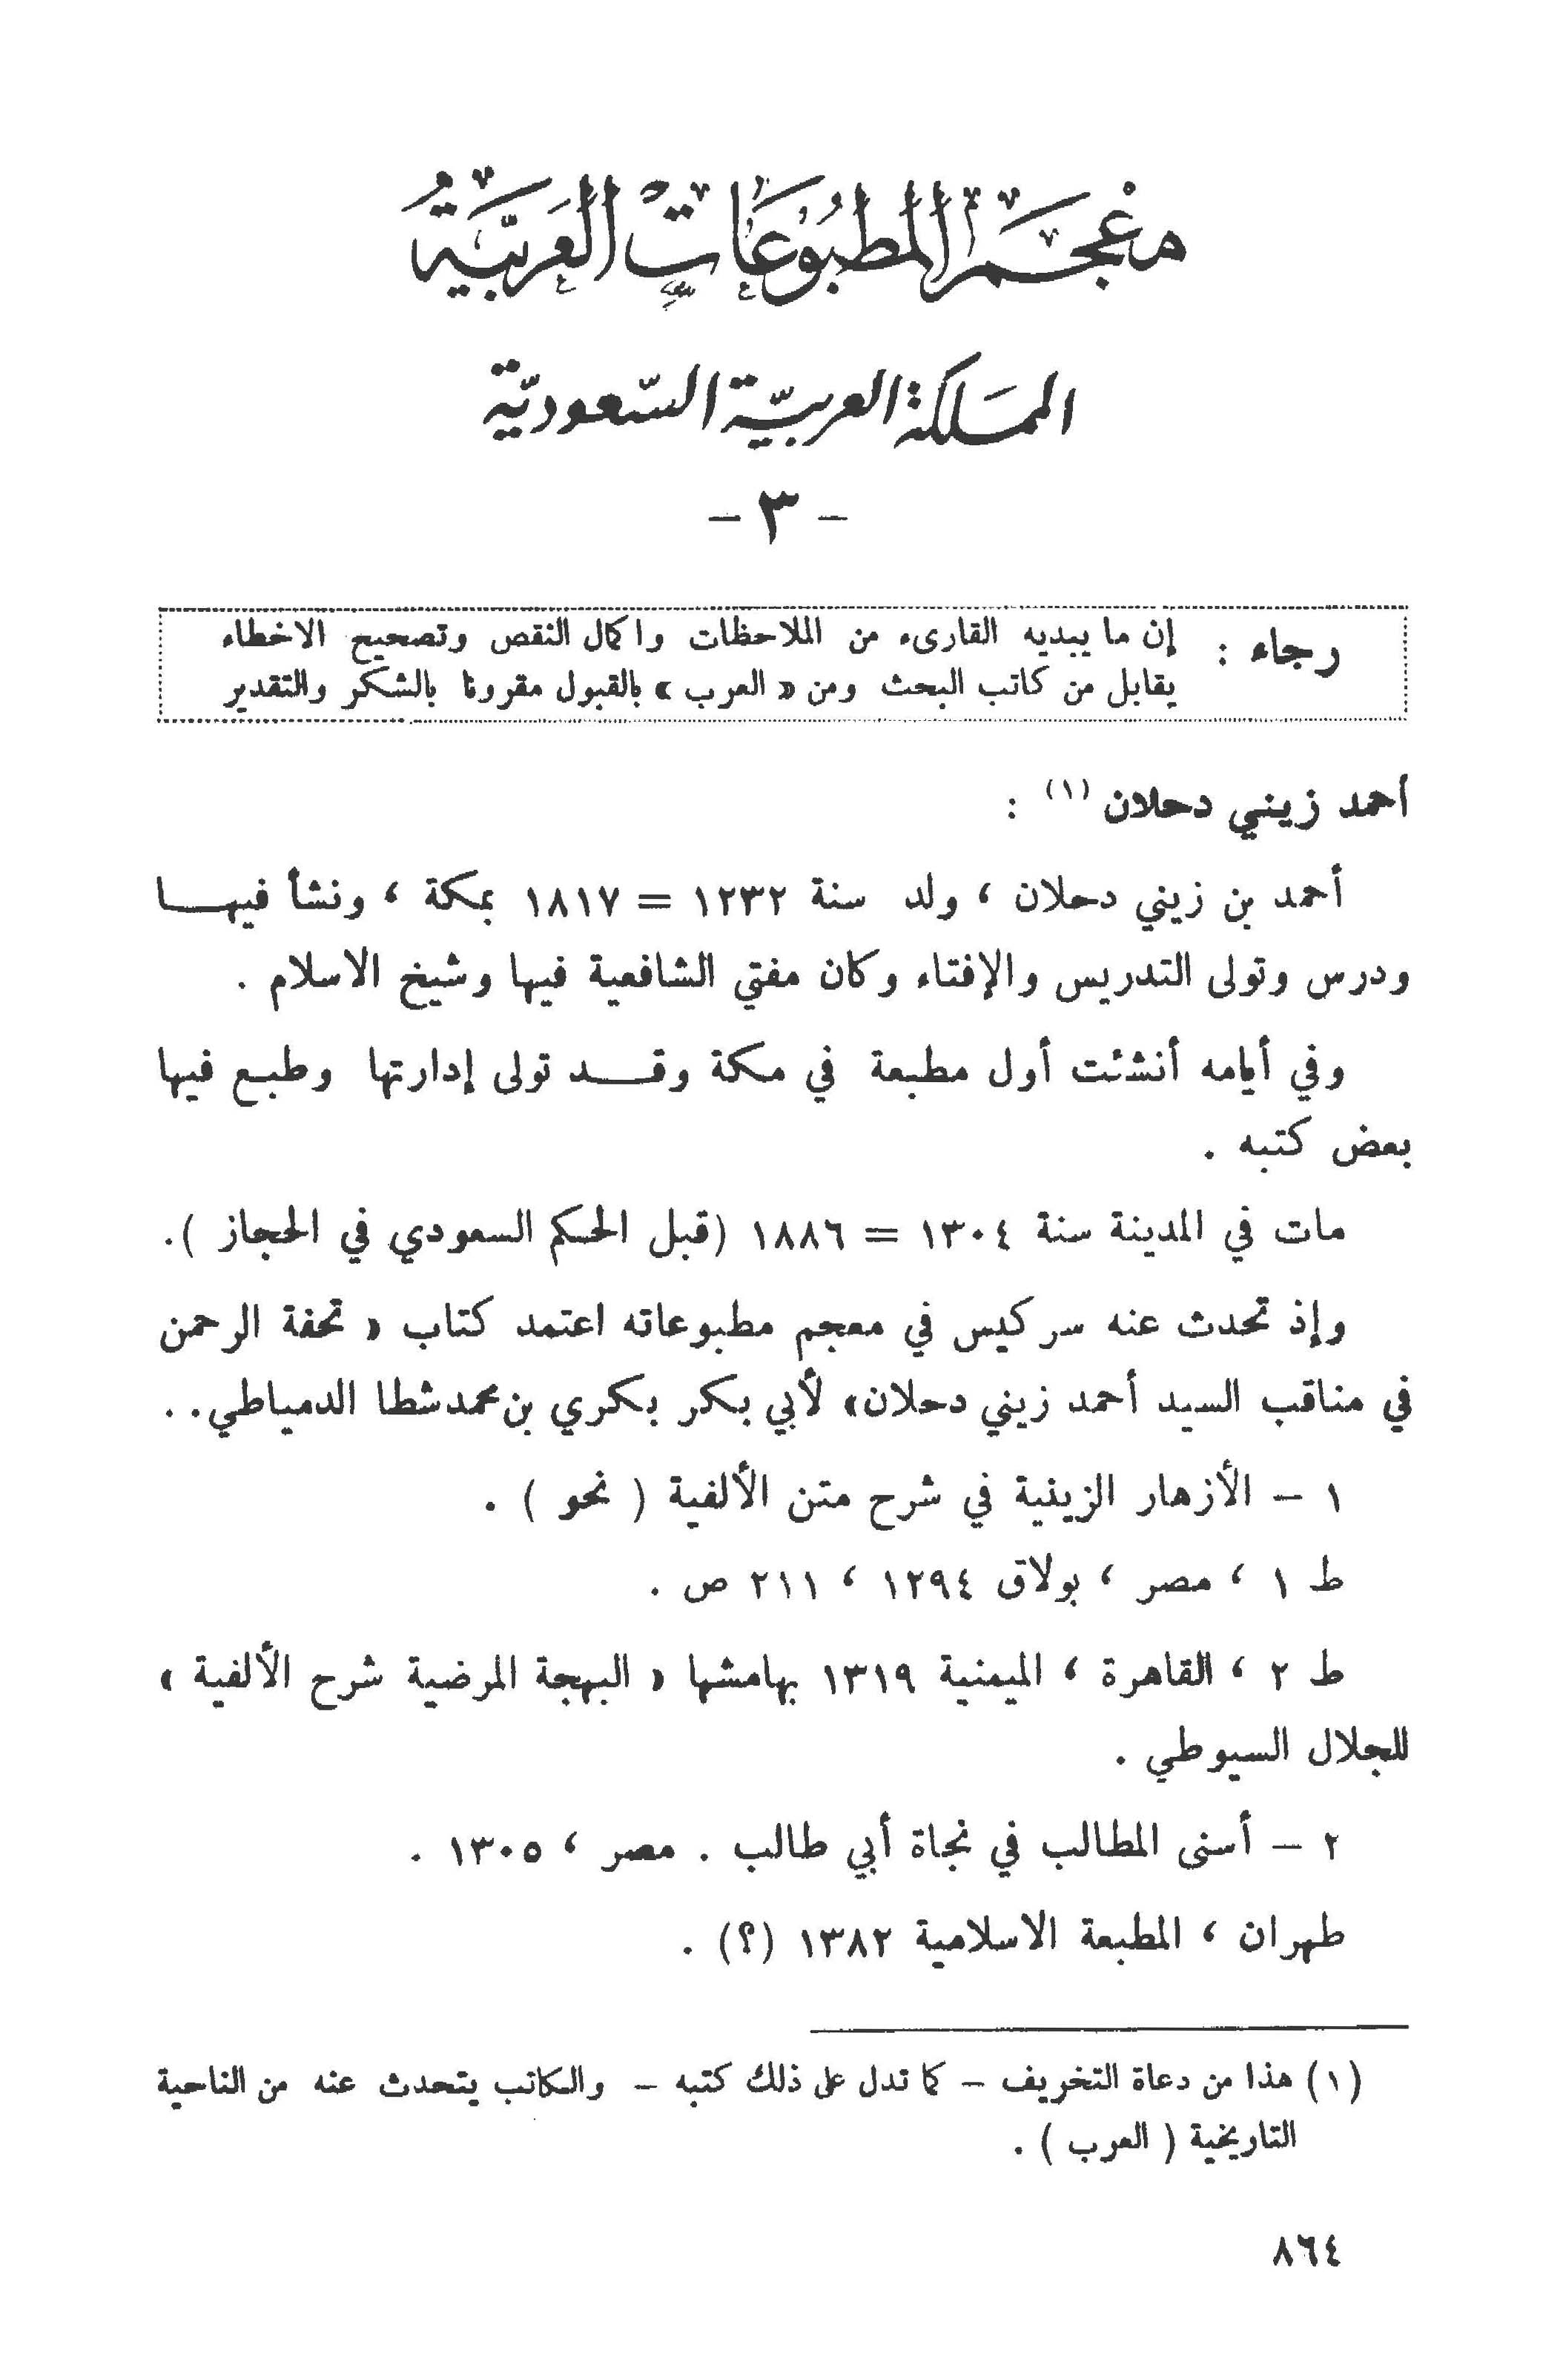 معجم المطبوعات العربية
المملكة العربية السعودية
- ٣ -
رجاء : إن ما يبديه القارىء من الملاحظات واكمال النقص وتصحيح الاخطاء
يقابل من كاتب البحث ومن « العرب » بالقبول مقرونا بالشكر والتقدير
أحمد زيني دحلان (١) :
أحمد بن زيني دحلان ، ولد سنة ١٢٣٢ = ١٨١٧ بمكة ، ونشأ فيهـــا
ودرس وتولى التدريس والإفتاء وكان مفتي الشافعية فيها وشيخ الاسلام .
وفي أيامه أنشئت أول مطبعة في مكة وقـــد تولى إدارتها وطبع فيها
بعض كتبه .
مات في المدينة سنة ١٣٠٤ = ١٨٨٦ (قبل الحكم السعودي في الحجاز ).
وإذ تحدث عنه سركيس في معجم مطبوعاته اعتمد كتاب « تحفة الرحمن
في مناقب السيد أحمد زيني دحلان» لأبي بكر بكري بن محمد شطا الدمياطي..
١ – الأزهار الزينية في شرح متن الألفية ( نحو ) .
ط ١ ، مصر ، بولاق ١٢٩٤ ، ٢١١ ص .
ط ٢ ، القاهرة ، الميمنية ١٣١٩ بهامشها « البهجة المرضية شرح الألفية »
للجلال السيوطي .
٢ – أسنى المطالب في نجاة أبي طالب . مصر ، ١٣٠٥ .
طهران ، المطبعة الاسلامية ١٣٨٢ (؟) .
(١) هذا من دعاة التخريف – كما تدل على ذلك كتبه – والكاتب يتحدث عنه من الناحية
التاريخية ( العرب ) .
٨٦٤